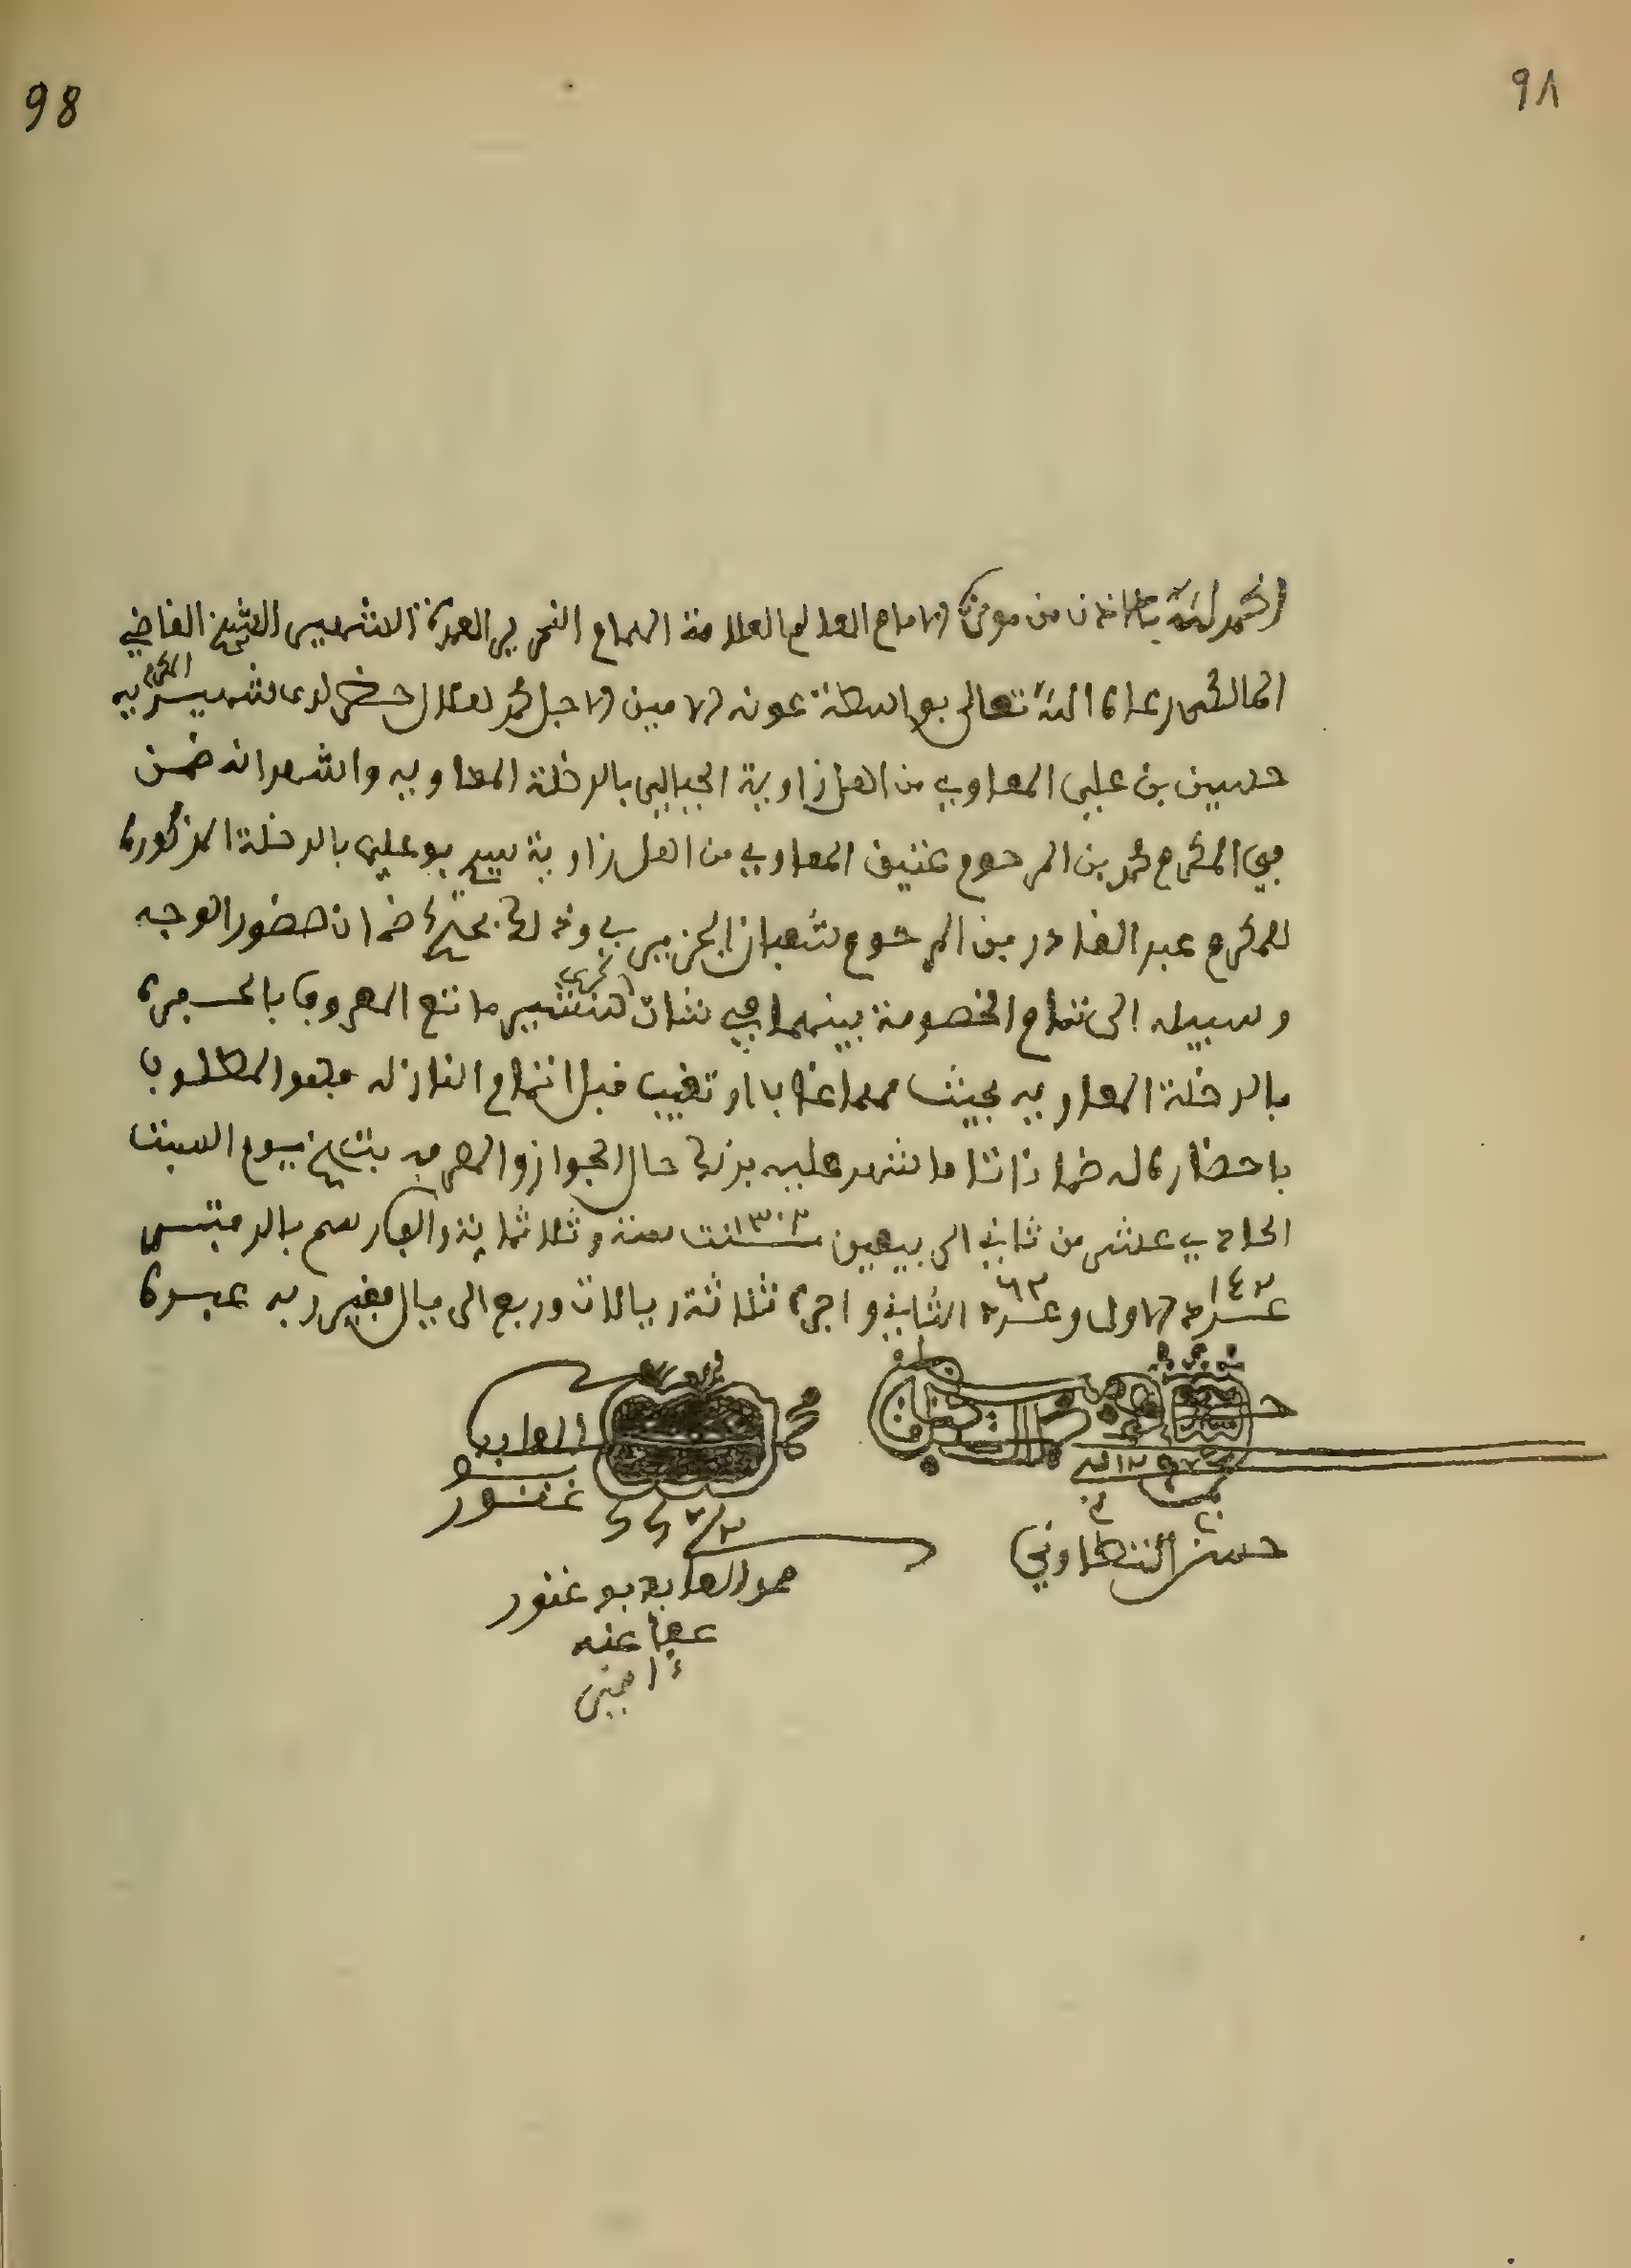 98
٩٨
الحمد لله بالاذن من مولانا الامام العالم العلامة الهمام النحرير العمدة الشهير الشيخ القاضي
المالكي رعاه الله تعالى بواسطة عونه الامين الاجل محمد حضر لدى شهيديه المكرم
حسين بن علي المعاوي من اهل زاوية الجبالي بالدخلة المعاويه واشهد انه ضمن
في المكرم محمد بن المرحوم عتيق المعاوي من اهل زاوية سيدي بوعلي بالدخلة المذكورة
للمكرم عبد القادر بن المرحوم شعبان الجزيري وذلك ضمان حضور الوجه
وسبيله الى تمام الخصومة بينهما في شان تحرير هنشير ماتع المعروف
بالدخلة المعاويه بحيث مهما غاب او تغيب قبل اتمام النازله فهو المطلوب
باحضاره له ضمانا تاما شهد عليه بذلك حال الجواز والمعرفه بتاريخ يوم السبت
الحادي عشر من ثاني الربيعين ١٣٠٢ سنت سنة وثلاثماية والف رسم بالدفتر
١٤٢ عدد الاول ٦٣ وعدد الثاني واجره ثلاثة ريالات وربع الريال فقير ربه عبده
محمد العابد بو غنور
حسن التطاوني
محمد العابد بو غنور
عفا عنه
ءامين